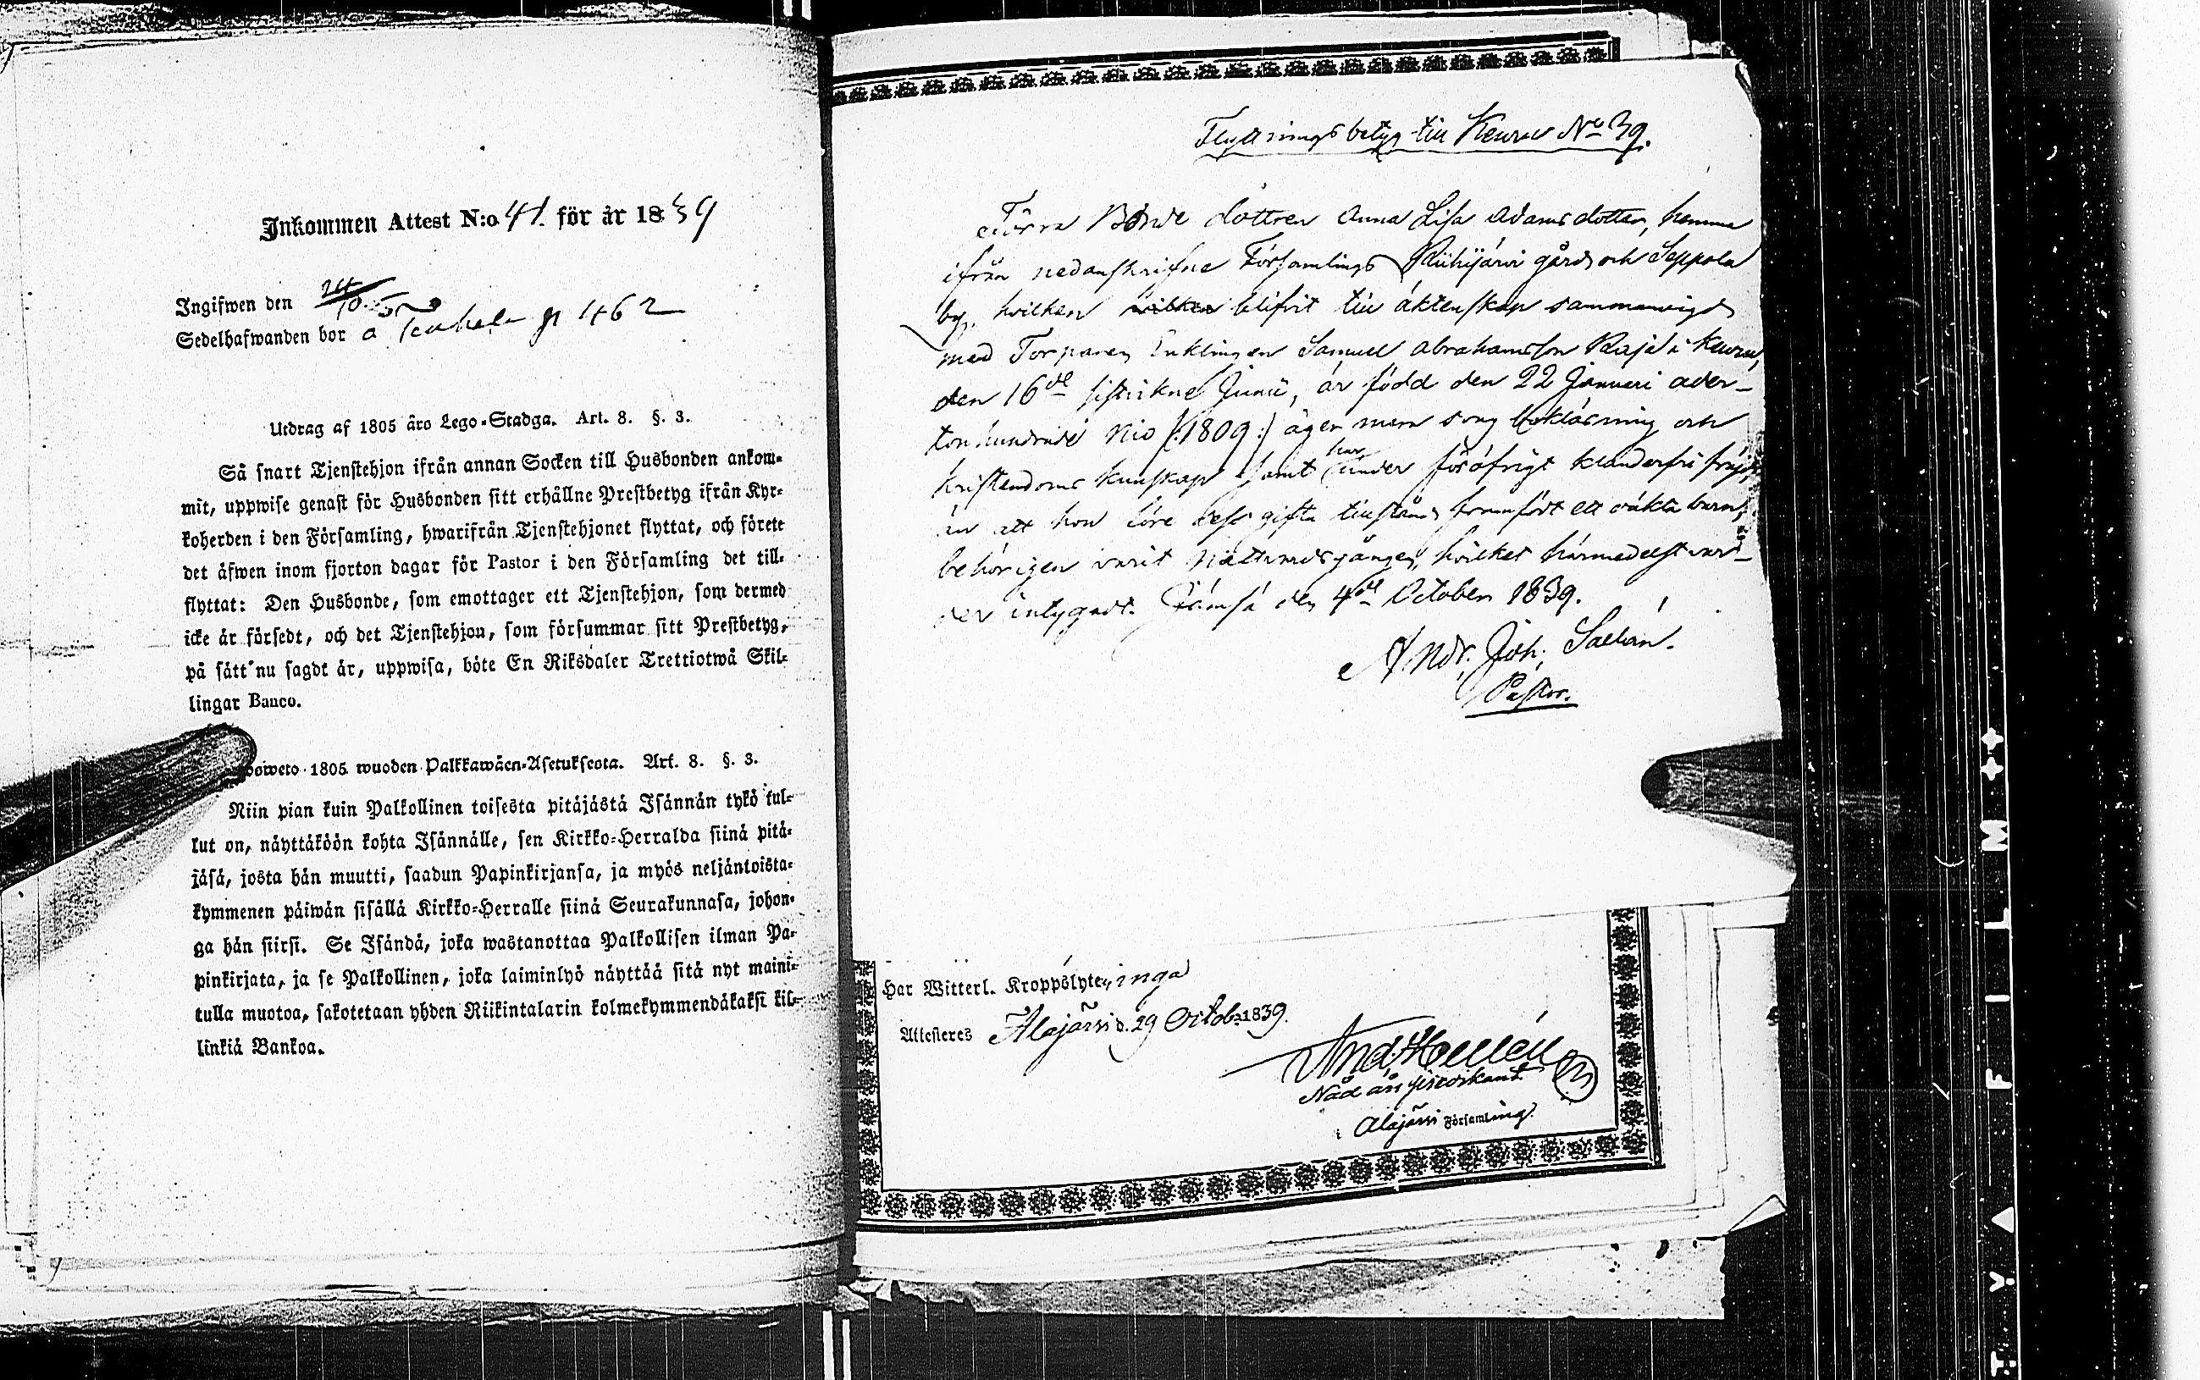 Inkommen Attest N:o 41. för år 1839
Ingifwen den 24/10
Sedelhafwanden bor å p 462
Utdrag af 1805 års Lego-Stadga. Art. 8. §. 3.
Så snart Tjenstehjon ifrån annan Socken till Husbonden ankom-
mit, uppwise genast för Husbonden sitt erhållne Prestbetyg ifrån Kyr-
koherden i den Församling, hwarifrån Tjenstehjonet flyttat, och förete
det äfwen inom fjorton dagar för Pastor i den Församling det till-
flyttat: Den Husbonde, som emottager ett Tjenstehjon, som dermed
icke är försedt, och det Tjenstehjon, som försummar sitt Prestbetyg,
på sätt nu sagdt är, uppwisa, böte En Riksdaler Trettiotwå Skil-
lingar Banco.
1805 wuoden Palkkawäen-Asetuksesta. Art. 8. §. 3.
Niin pian kuin Palkollinen toisesta pitäjästä Isännän tykö tul-
lut on, näyttäköön kohta Isännälle, sen Kirkko-Herralda siinä pitä-
jäsä, josta hän muutti, saadun Papinkirjansa, ja myös neljäntoista-
kymmenen päiwän sisällä Kirkko-Herralle siinä Seurakunnasa, johon-
ga hän siirsi. Se Isändä, joka wastanottaa Palkollisen ilman Pa-
pinkirjata, ja se Palkollinen, joka laiminlyö näyttää sitä nyt maini-
tulla muotoa, sakotetaan yhden Riikintalarin kolmekymmendäkaksi kil-
linkiä Bankoa.
Flyttningsbetyg till Keuru No 39.
Förra Bonde dottren Anna Lisa Adamsdotter, hemma
ifrån nedanskrifne Församlings gård och Seppola
by, hvilken hvilken blifvit till äktenskap sammanvigd
med Torparen Enklingen Samuel Abrahamsson Raja i Keuru,
den 16de sistvikne Junii, är född den 22 Januari ader-
tonhundrade Nio /:1809:/ äger mera svag bokläsning och
kristendoms kunskap samt har under föröfrigt klanderfri frejd,
än att hon före dess gifta tillstånd framfödt ett oäkta barn,
behörigen varit Nattvardsgången, hvilket härmedelst var-
der intygadt. Jämsä den 4de October 1839.
Andr. Joh.
Pastor.
Har Witterl. Kroppslyten, inga
Attesteras Alajärvi d. 29 Octobr. 1839.
And:
Nåd års
i Alajärvi Församling.
FILM